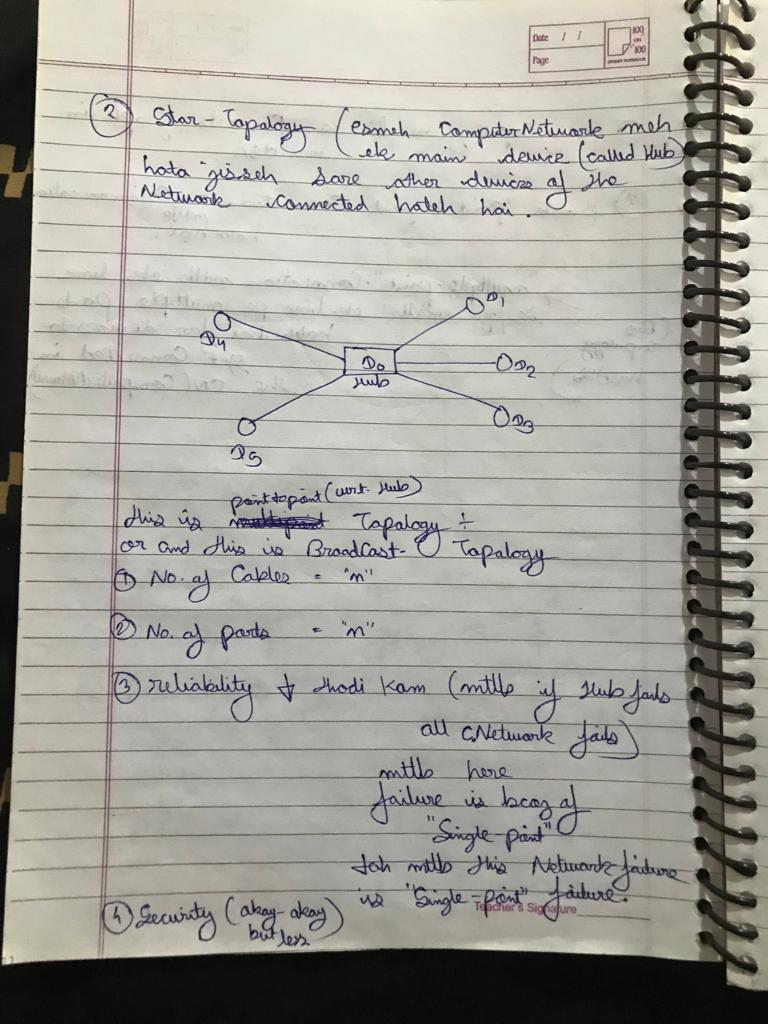 Date / /
Page
100
on
100
② Star-Tapalogy (esmeh Computer Network meh
ek main device (called Hub)
hota jisseh sare other devices of the
Network connected hoteh hai.
D1
D4
D0
D2
Hub
D3
D5
point to point (wrt. Hub)
this is Tapalogy
or and this is BroadCast- Tapalogy
① No. of Cables = "n"
② No. of ports = "n"
③ reliability ↓ thodi Kam (mtlb if Hub fails
all C.Network fails)
mtlb here
failure is bcoz of
"Single-point"
toh mtlb this Network failure
is "Single-point" failure.
Teacher's Signature
④ Security (okay-okay)
but less